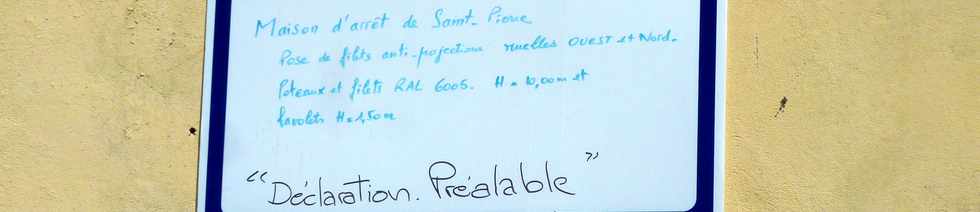 Maison d'arrêt de Saint-Pierre
Pose de filets anti-projections ruelles OUEST et Nord.
Poteaux et filets RAL 6005. H = 10,00m et
bavolets H = 1,50m
"Déclaration. Préalable"